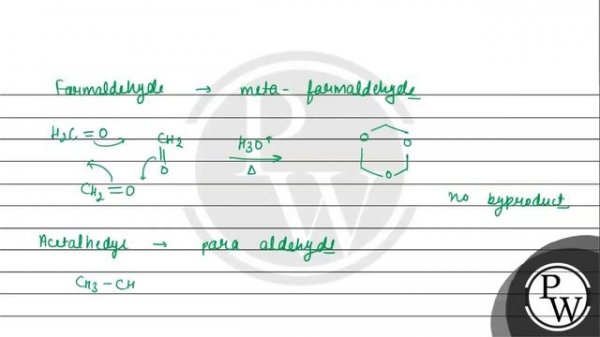 Formaldehyde → meta-formaldehyde
H2C=O CH2 H3O+ O O
O Δ
CH2=O O
no byproduct
Acetalhedye → para aldehyde
CH3-CH
P
W
P
W